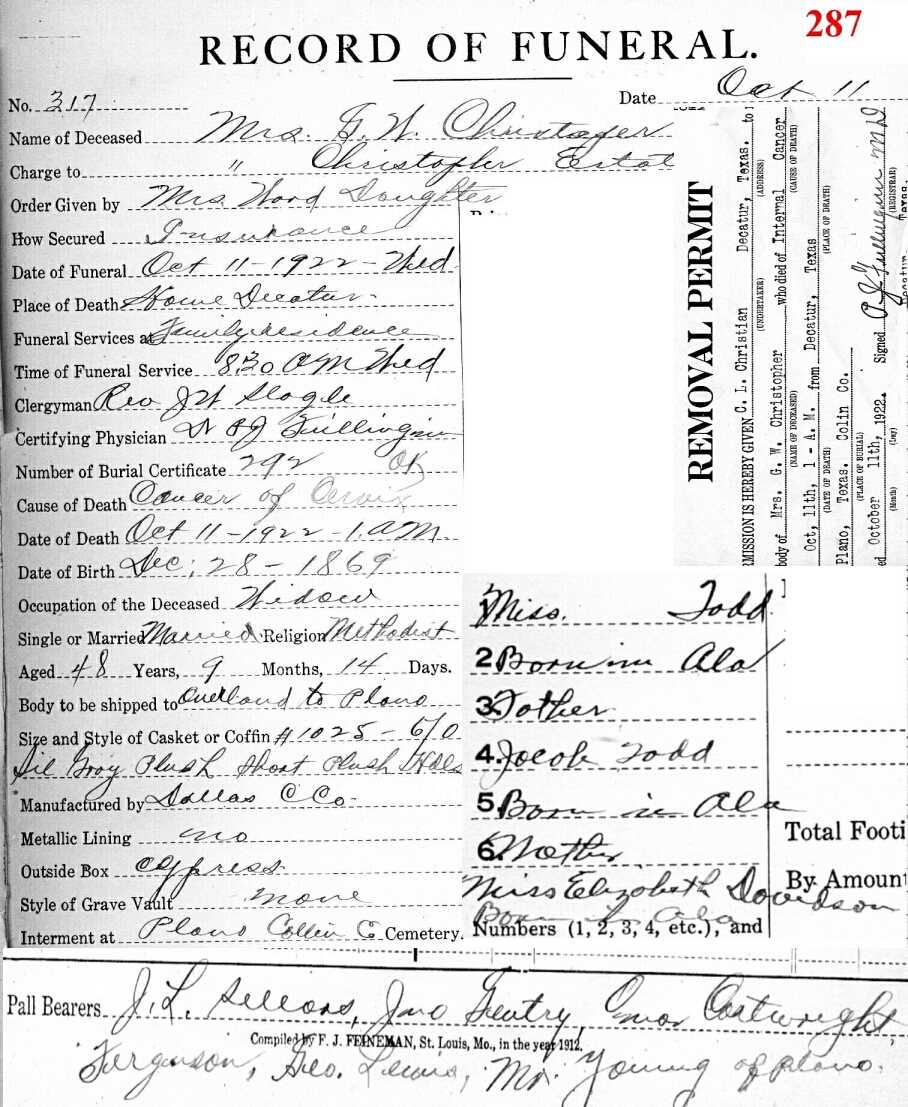 287
RECORD OF FUNERAL.
No. 317
Date Oct 11
Name of Deceased Mrs. G. W. Christopher
Charge to " Christopher Estat
Order Given by Mrs Word Daughter
How Secured Insurance
Date of Funeral Oct 11-1922-Wed
Place of Death Home Decatur
Funeral Services at Family residence
Time of Funeral Service 8:30 AM Wed
Clergyman Rev J W Slagle
Certifying Physician Dr P J Fullingim
Number of Burial Certificate 292 OK
Cause of Death Cancer of Cervix
Date of Death Oct 11-1922-1. AM.
Date of Birth Dec. 28-1869
Occupation of the Deceased Widow
Single or Married Married Religion Methodist
Aged 48 Years, 9 Months, 14 Days.
Body to be shipped to Overland to Plano
Size and Style of Casket or Coffin #1025-6/0
Sil Gray Plush Short Plush Hdls
Manufactured by Dallas C Co.
Metallic Lining no
Outside Box cypress
Style of Grave Vault none
Interment at Plano Collen C. Cemetery.
REMOVAL PERMIT
MISSION IS HEREBY GIVEN C. L. Christian Decatur, Texas. to
(UNDERTAKER) (ADDRESS)
body of Mrs. G. W. Christopher who died of Internal Cancer
(NAME OF DECEASED) (CAUSE OF DEATH)
Oct, 11th, 1 - A. M. from Decatur, Texas
(DATE OF DEATH) (PLACE OF DEATH)
Plano, Texas. Colin Co.
(PLACE OF BURIAL)
ed October 11th, 1922. Signed P J Fullingim M D
(Month) (Day) (REGISTRAR)
Decatur, Texas.
1 Miss. Todd
2. Born in Ala
3. Father
4. Jacob Todd
5. Born in Ala
6. Mother
Miss Elizabeth Davidson
Born in Ala
Numbers (1, 2, 3, 4, etc.), and
Total Footi
By Amoun
Pall Bearers J. L. Sellars, Jno Gentry, Omar Cartwright,
Compiled by F. J. FEINEMAN, St. Louis, Mo., in the year 1912.
Ferguson, Geo. Lewis, Mr. Young of plano.